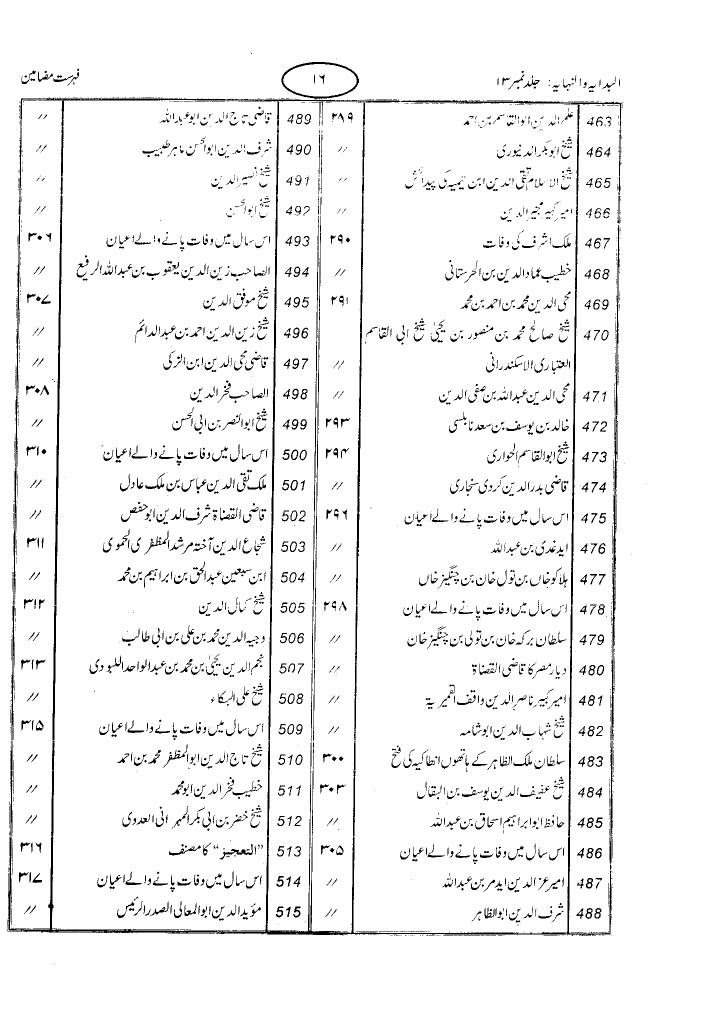 البدایہ والنہایہ: جلد نمبر ۱۳
۱۶
فہرست مضامین
463 علم الدین ابوالقاسم بن احمد ۲۸۹
464 شیخ ابوبکر الدینوری //
465 شیخ الاسلام تقی الدین ابن تیمیہ کی پیدائش //
466 امیر کبیر مجیر الدین //
467 ملک اشرف کی وفات ۲۹۰
468 خطیب عماد الدین بن الحرستانی //
469 محی الدین محمد بن احمد بن محمد ۲۹۱
470 شیخ صالح محمد بن منصور بن یحییٰ شیخ ابی القاسم
العتباری الاسکندرانی //
471 محی الدین عبداللہ بن صفی الدین //
472 خالد بن یوسف بن سعد نابلسی ۲۹۳
473 شیخ ابوالقاسم الحواری ۲۹۴
474 قاضی بدر الدین کردی سنجاری //
475 اس سال میں وفات پانے والے اعیان ۲۹۶
476 ایدغدی بن عبداللہ //
477 ہلاکو خاں بن تول خان بن چنگیز خاں //
478 اس سال میں وفات پانے والے اعیان ۲۹۸
479 سلطان برکہ خان بن تولی بن چنگیز خان //
480 دیار مصر کا قاضی القضاة //
481 امیر کبیر ناصر الدین واقف القمیریة //
482 شیخ شہاب الدین ابوشامہ //
483 سلطان ملک الظاہر کے ہاتھوں انطاکیہ کی فتح ۳۰۰
484 شیخ عفیف الدین یوسف بن البقال ۳۰۳
485 حافظ ابوابراہیم اسحاق بن عبداللہ //
486 اس سال میں وفات پانے والے اعیان ۳۰۵
487 امیر عز الدین ایدمر بن عبداللہ //
488 شرف الدین ابوالظاہر //
489 قاضی تاج الدین ابوعبداللہ //
490 شرف الدین ابوالحسن ماہر طبیب //
491 شیخ نصیر الدین //
492 شیخ ابوالحسن //
493 اس سال میں وفات پانے والے اعیان ۳۰۶
494 الصاحب زین الدین یعقوب بن عبداللہ الرفیع //
495 شیخ موفق الدین ۳۰۷
496 شیخ زین الدین احمد بن عبدالدائم //
497 قاضی محی الدین ابن الزکی //
498 الصاحب فخر الدین ۳۰۸
499 شیخ ابوالنصر بن ابی الحسن //
500 اس سال میں وفات پانے والے اعیان ۳۱۰
501 ملک تقی الدین عباس بن ملک عادل //
502 قاضی القضاة شرف الدین ابوحفص //
503 شجاع الدین آختہ مرشد المظفری الحموی ۳۱۱
504 ابن سبعین عبدالحق بن ابراہیم بن محمد //
505 شیخ کمال الدین ۳۱۲
506 وجیہ الدین محمد بن علی بن ابی طالب //
507 نجم الدین یحییٰ بن محمد بن عبدالواحد اللبودی ۳۱۳
508 شیخ علی البکاء //
509 اس سال میں وفات پانے والے اعیان ۳۱۵
510 شیخ تاج الدین ابوالمظفر محمد بن احمد //
511 خطیب فخر الدین ابومحمد //
512 شیخ خضر بن ابی بکر المہرانی العددی //
513 "التعجیز" کا مصنف ۳۱۶
514 اس سال میں وفات پانے والے اعیان ۳۱۷
515 مؤید الدین ابوالمعالی الصدر الرئیس //